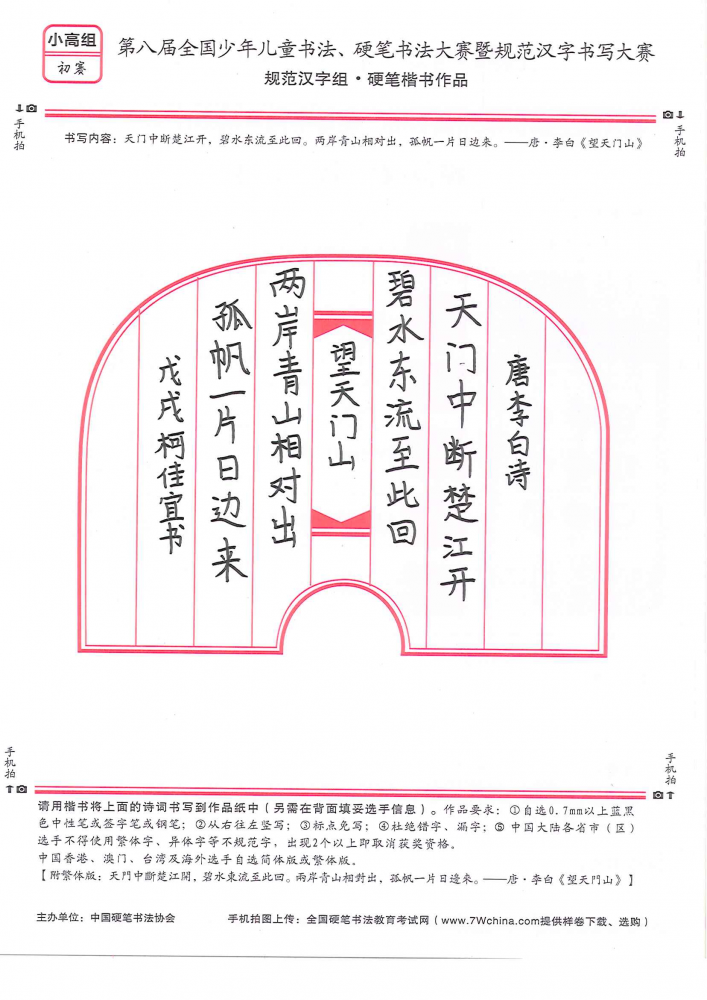 小高组
初赛
第八届全国少年儿童书法、硬笔书法大赛暨规范汉字书写大赛
规范汉字组·硬笔楷书作品
手机拍
手机拍
书写内容：天门中断楚江开，碧水东流至此回。两岸青山相对出，孤帆一片日边来。——唐·李白《望天门山》
唐李白诗
天门中断楚江开
碧水东流至此回
望天门山
两岸青山相对出
孤帆一片日边来
戊戌柯佳宜书
手机拍
手机拍
请用楷书将上面的诗词书写到作品纸中（另需在背面填妥选手信息）。作品要求：①自选0.7mm以上蓝黑
色中性笔或签字笔或钢笔；②从右往左竖写；③标点免写；④杜绝错字、漏字；⑤中国大陆各省市（区）
选手不得使用繁体字、异体字等不规范字，出现2个以上即取消获奖资格。
中国香港、澳门、台湾及海外选手自选简体版或繁体版。
【附繁体版：天門中斷楚江開，碧水東流至此回。兩岸青山相對出，孤帆一片日邊來。——唐·李白《望天門山》】
主办单位：中国硬笔书法协会
手机拍图上传：全国硬笔书法教育考试网（www.7Wchina.com提供样卷下载、选购）